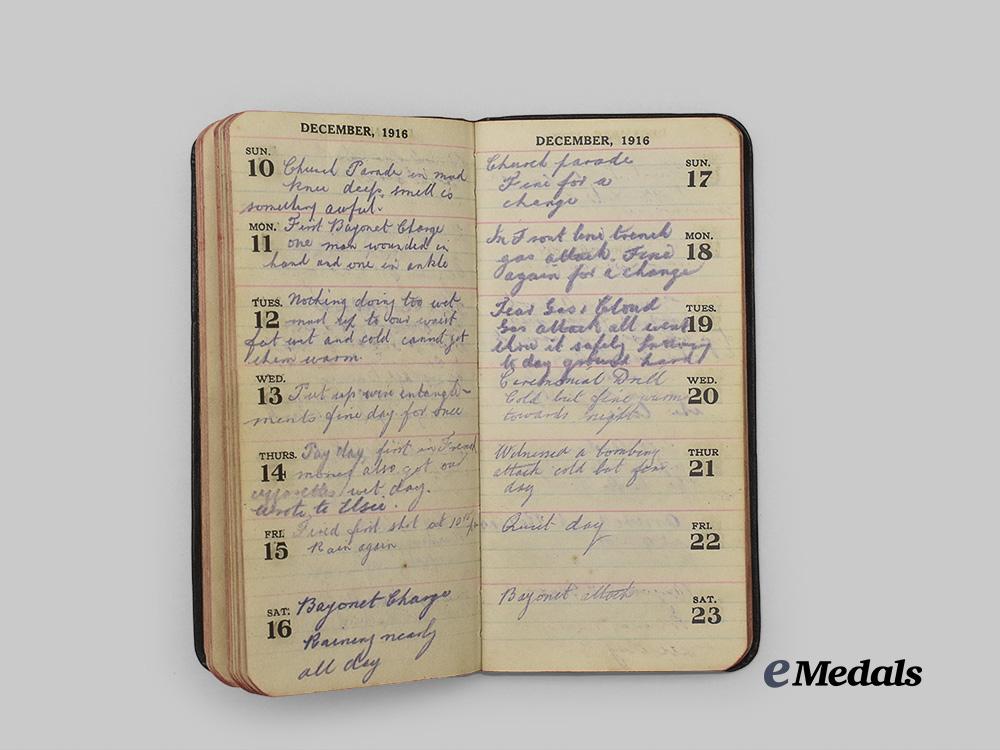 DECEMBER, 1916
SUN.
10
Church Parade in mud
knee deep, smell is
something awful.
MON.
11
First Bayonet Charge
one man wounded in
hand and one in ankle
TUES.
12
Nothing doing too wet
mud up to our waist
feet wet and cold cannot get
them warm.
WED.
13
Put up wire entangle-
ments fine day for once
THURS.
14
Pay day, first in French
money also got our
wet day.
wrote to Elsie.
FRI.
15
Fired first shot at 10
Rain again
SAT.
16
Bayonet Charge
Raining nearly
all day
DECEMBER, 1916
SUN.
17
Church parade
Fine for a
change
MON.
18
In Front line trench
gas attack. Fine
again for a change
TUES.
19
Tear Gas & Cloud
Gas attack all went
thro it safely
to day ground hard
WED.
20
Ceremonial Drill
Cold but fine warm
towards night
THUR
21
Witnessed a bombing
attack cold but fine
day
FRI.
22
Quiet day
SAT.
23
Bayonet attack
eMedals